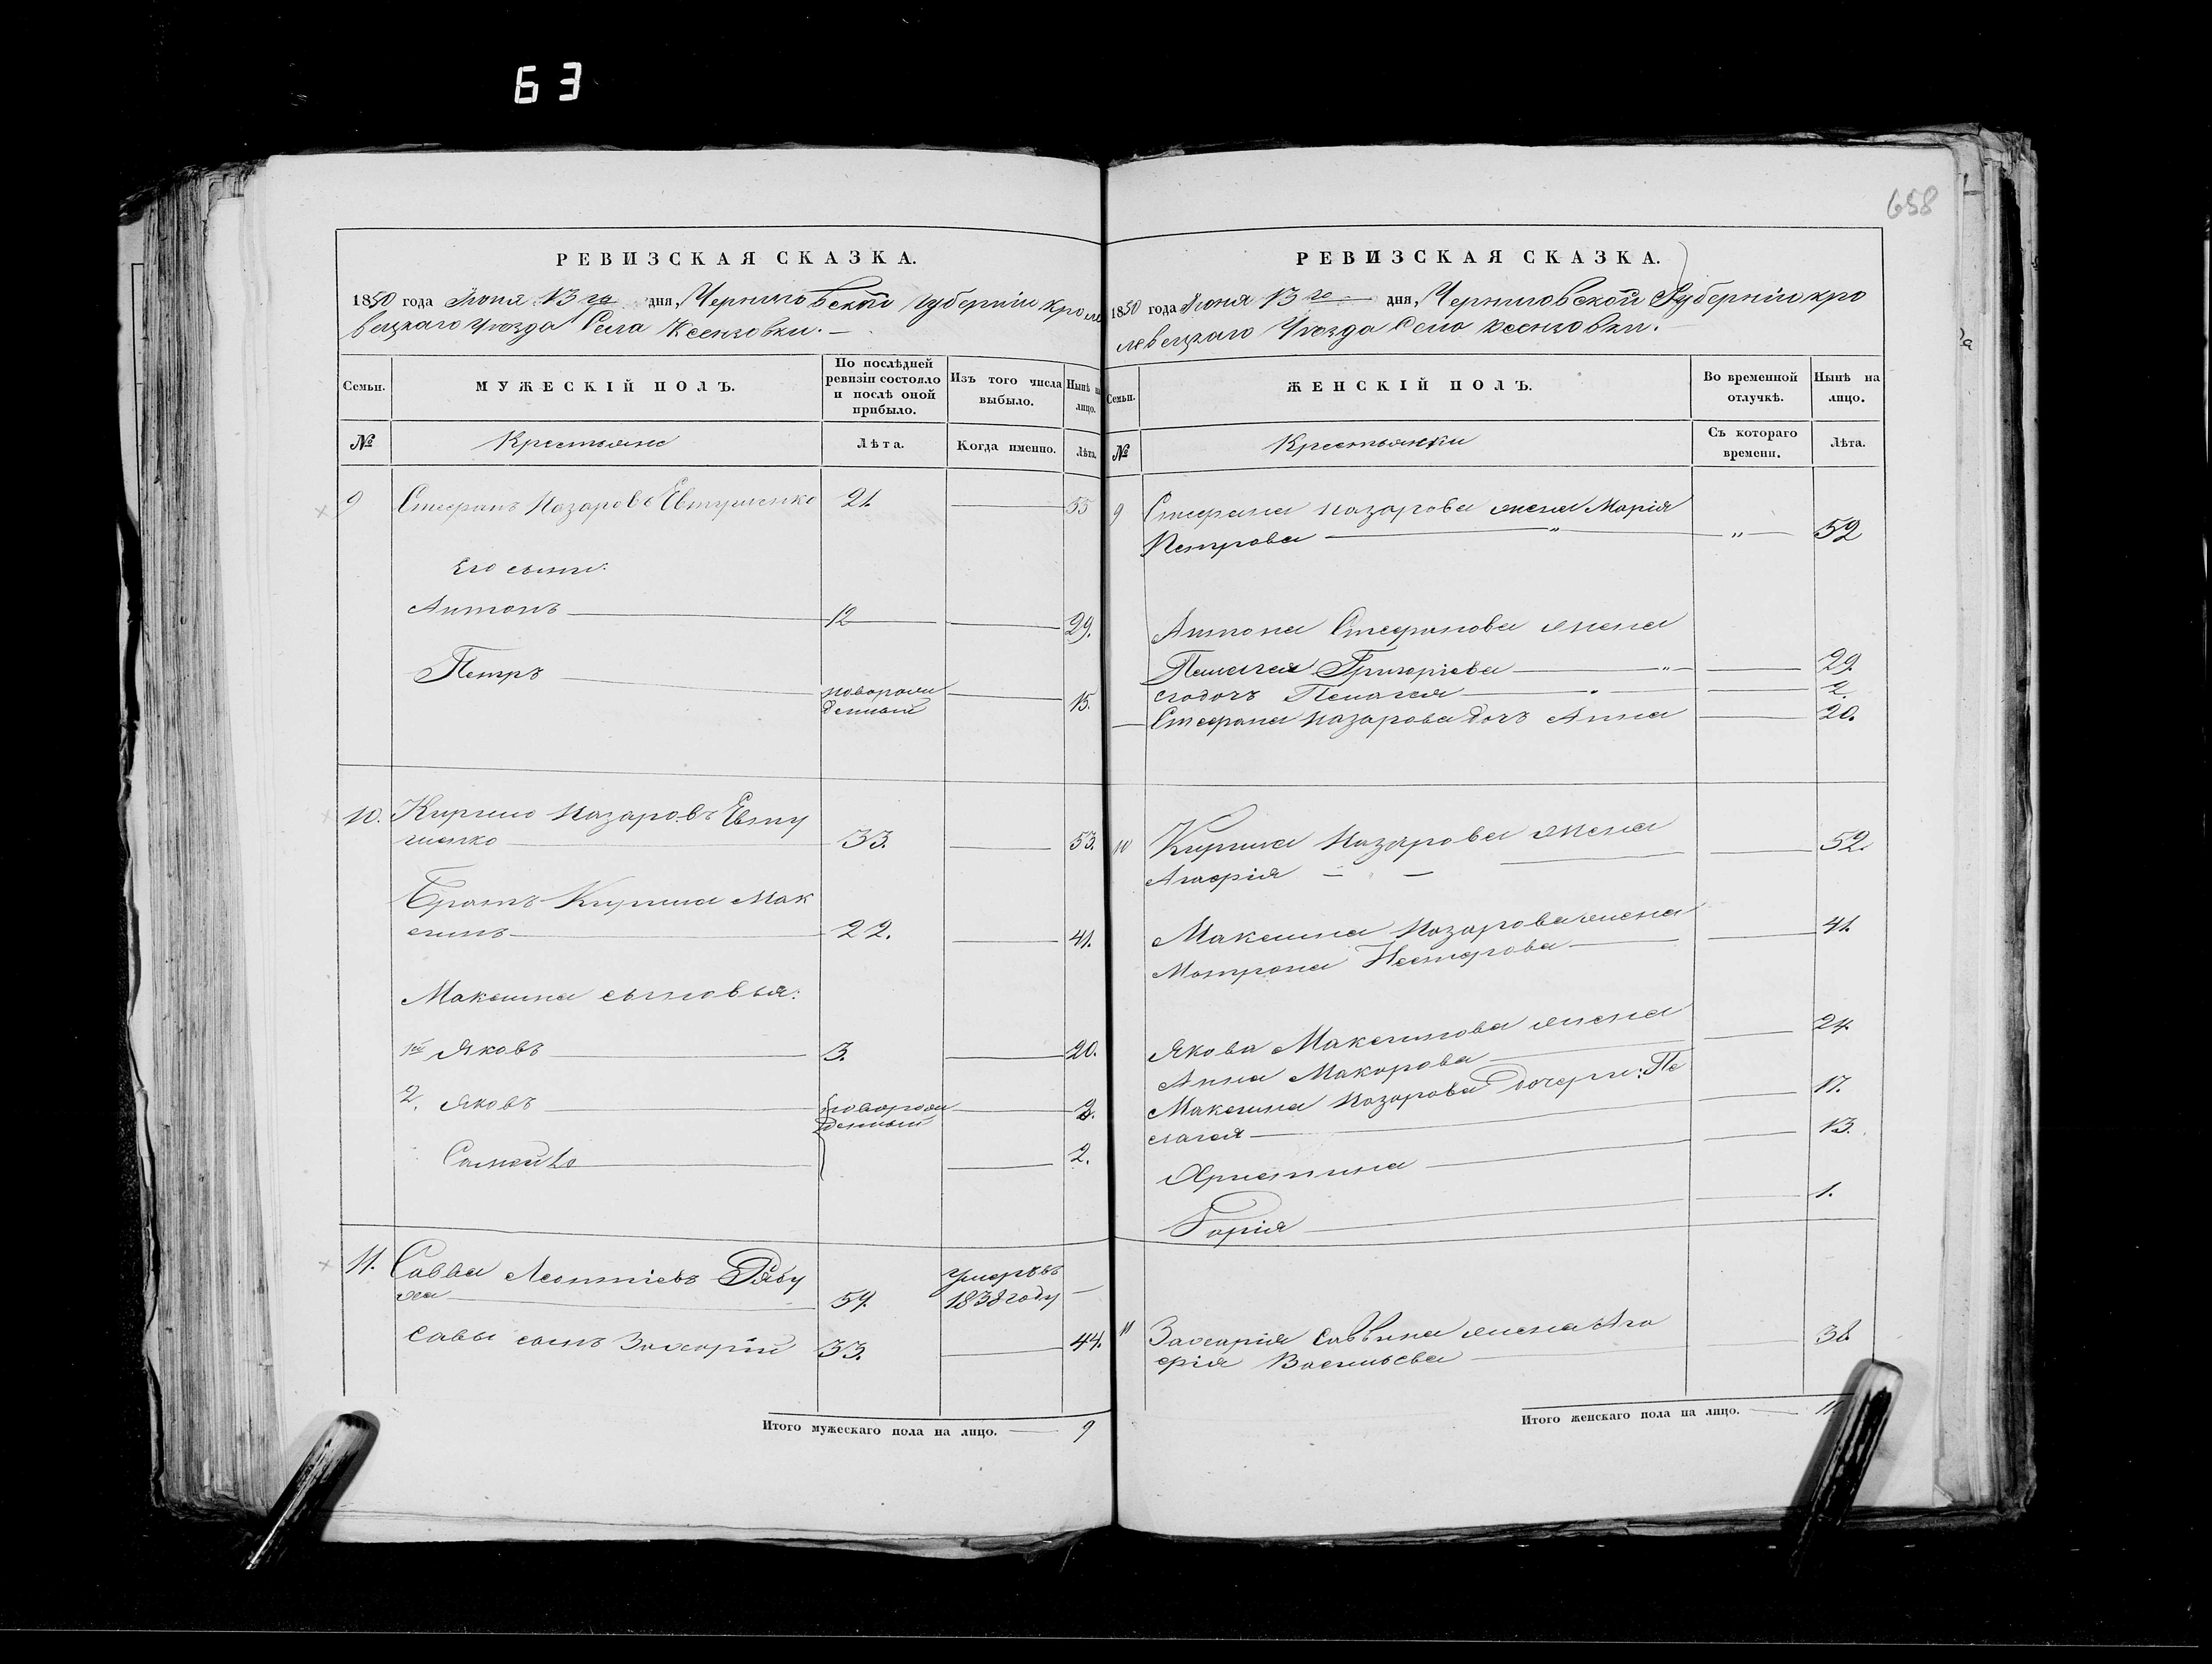 63
658
РЕВИЗСКАЯ СКАЗКА.
1850 года Июня 13го дня, Черниговской губерніи Кроле
вецкаго уѣзда Села Ксензовки.
Семьи.
МУЖЕСКІЙ ПОЛЪ.
По послѣдней
ревизіи состояло
и послѣ оной
прибыло.
Изъ того числа
выбыло.
Нынѣ на
лицо.
№
Крестьяне
Лѣта.
Когда именно.
Лѣта.
9 Стефанъ Назаровъ Евтушенко 21. 55
Его сыны:
Антонъ 12 29.
Петръ новорож
денный 15.
10. Кирило Назаровъ Евту
шенко 33. 53.
Братъ Кирила Мак
симъ 22. 41.
Максима сыновья:
1й Яковъ 3. 20.
2. Яковъ новорож
денный 2.
Самойло 2.
11. Савва Леонтіевъ Рябу
ха 59. умеръ въ
1838 году
Савы сынъ Захарій 33. 44.
Итого мужескаго пола на лицо. 9
РЕВИЗСКАЯ СКАЗКА.
1850 года Июня 13го дня, Черниговской Губерніи Кро
левецкаго Уѣзда Село Ксензовки.
Семьи.
ЖЕНСКІЙ ПОЛЪ.
Во временной
отлучкѣ.
Нынѣ на
лицо.
№
Крестьянки
Съ котораго
времени.
Лѣта.
9 Стефана Назарова жена Марія
Петрова " " 52
Антона Стефанова жена
Пелагея Григоріева " 29.
егодочь Пелагея " 2.
Стефана Назарова дочь Анна 20.
10 Кирила Назарова жена 52.
Агафія
Максима Назарова жена 41.
Мотрона Нестерова
Якова Максимова жена 24.
Анна Макарова
Максима Назарова дочери: Пе 17.
лагея
Христина 13.
1.
11 Захарія Саввина жена Ага 38
фія Васильева
Итого женскаго пола на лицо. 11